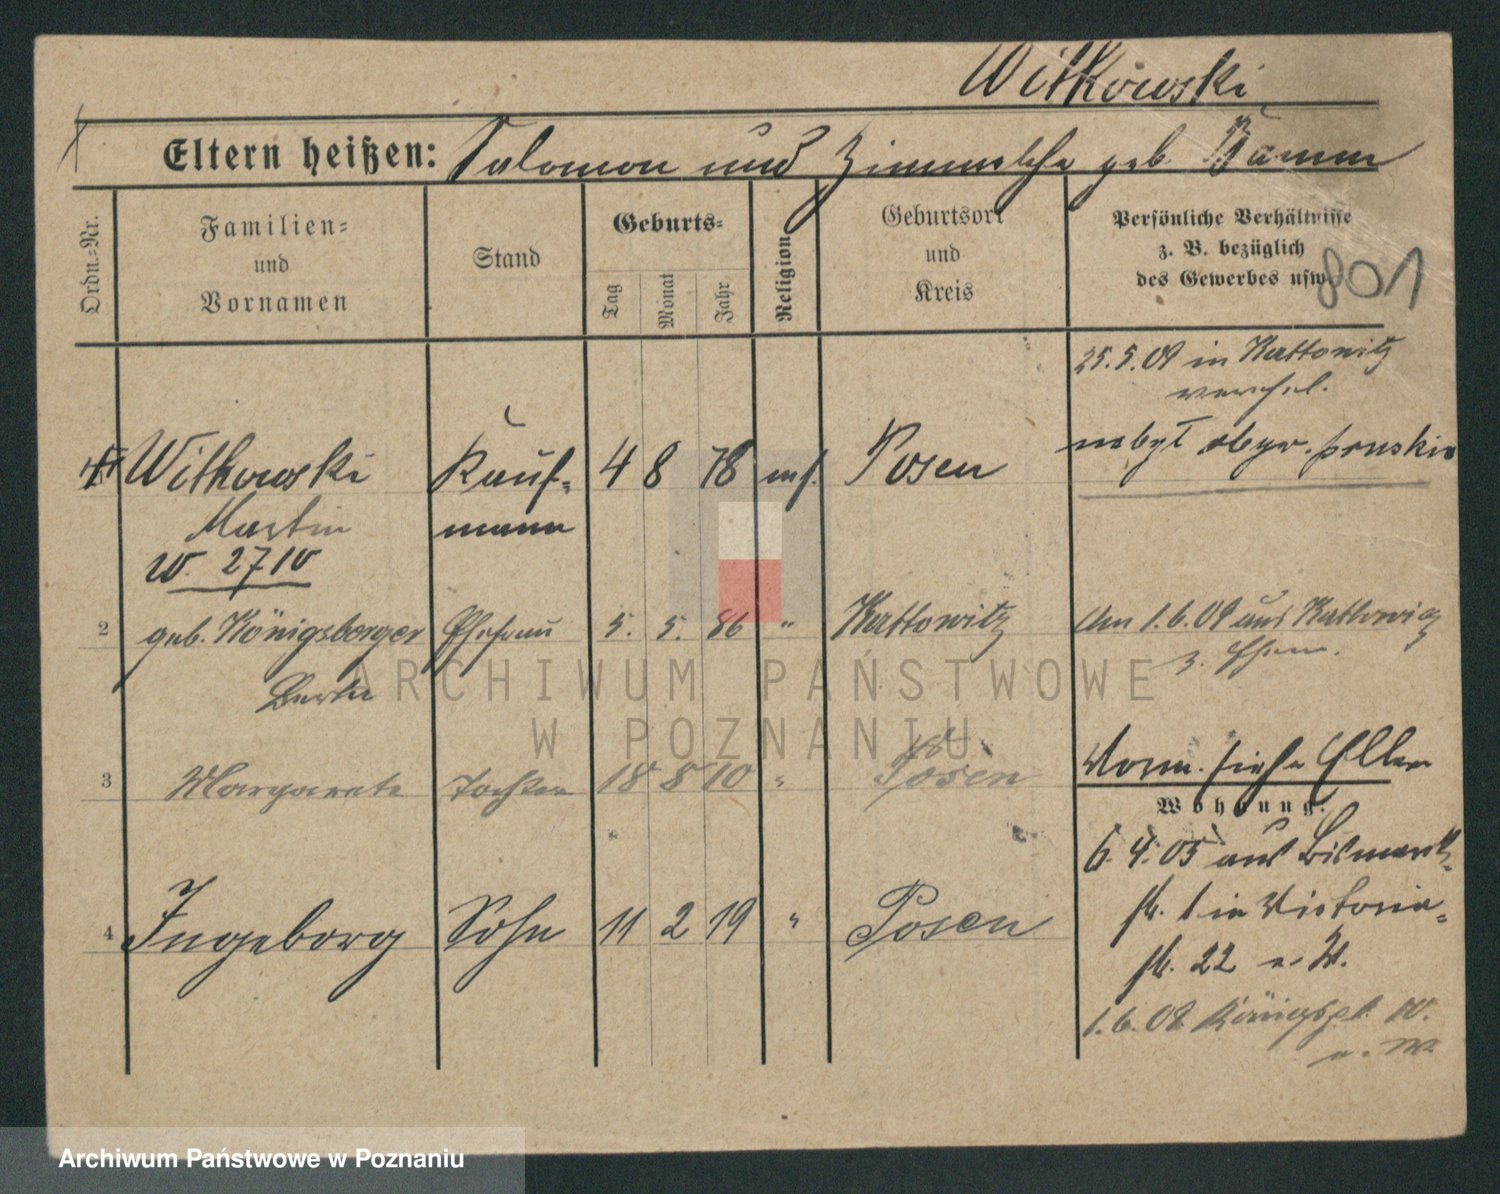 Witkowski
Eltern heißen: Salomon und geb. Bamm
Ordn.-Nr.
Familien-
und
Vornamen
Stand
Geburts-
Tag
Monat
Jahr
Religion
Geburtsort
und
Kreis
Persönliche Verhältnisse
z. B. bezüglich
des Gewerbes usw.
801
25.5.09 in Kattowitz
verehel.
Witkowski Kauf- 4 8 78 mos. Posen nabył obyw. pruskie
Martin mann
W. 2710
2 geb. Königsberger Ehefrau 5. 5. 86 " Kattowitz Am 1.6.09 aus Kattowitz
Berta z. Ehem.
3 Margarete Tochter 18 8 10 " Posen Vorm. siehe Eltern
Wohnung.
6.4.05 aus Bismarck-
4 Ingeborg Sohn 11 2 19 " Posen str. 1 in Victoria-
str. 22 n. W.
1.6.08 Königspl. W.
n. W.
ARCHIWUM PAŃSTWOWE
W POZNANIU
Archiwum Państwowe w Poznaniu